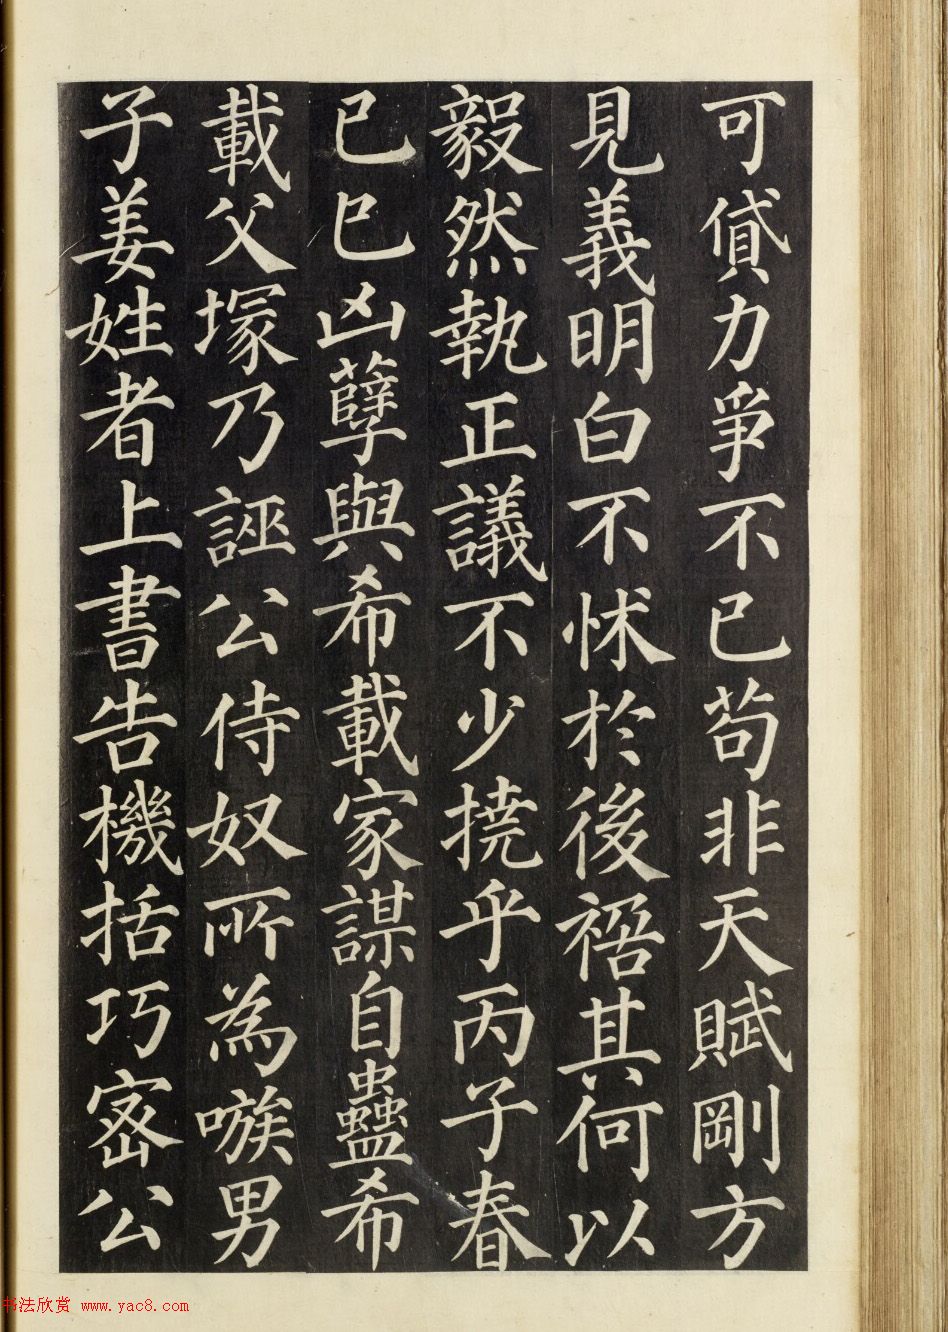 可貸力爭不已苟非天賦剛方
見義明白不怵於後禍其何以
毅然執正議不少撓乎丙子春
已巳凶孽與希載家謀自蠱希
載父塚乃誣公侍奴所為嗾男
子姜姓者上書告機括巧密公
书法欣赏 www.yac8.com